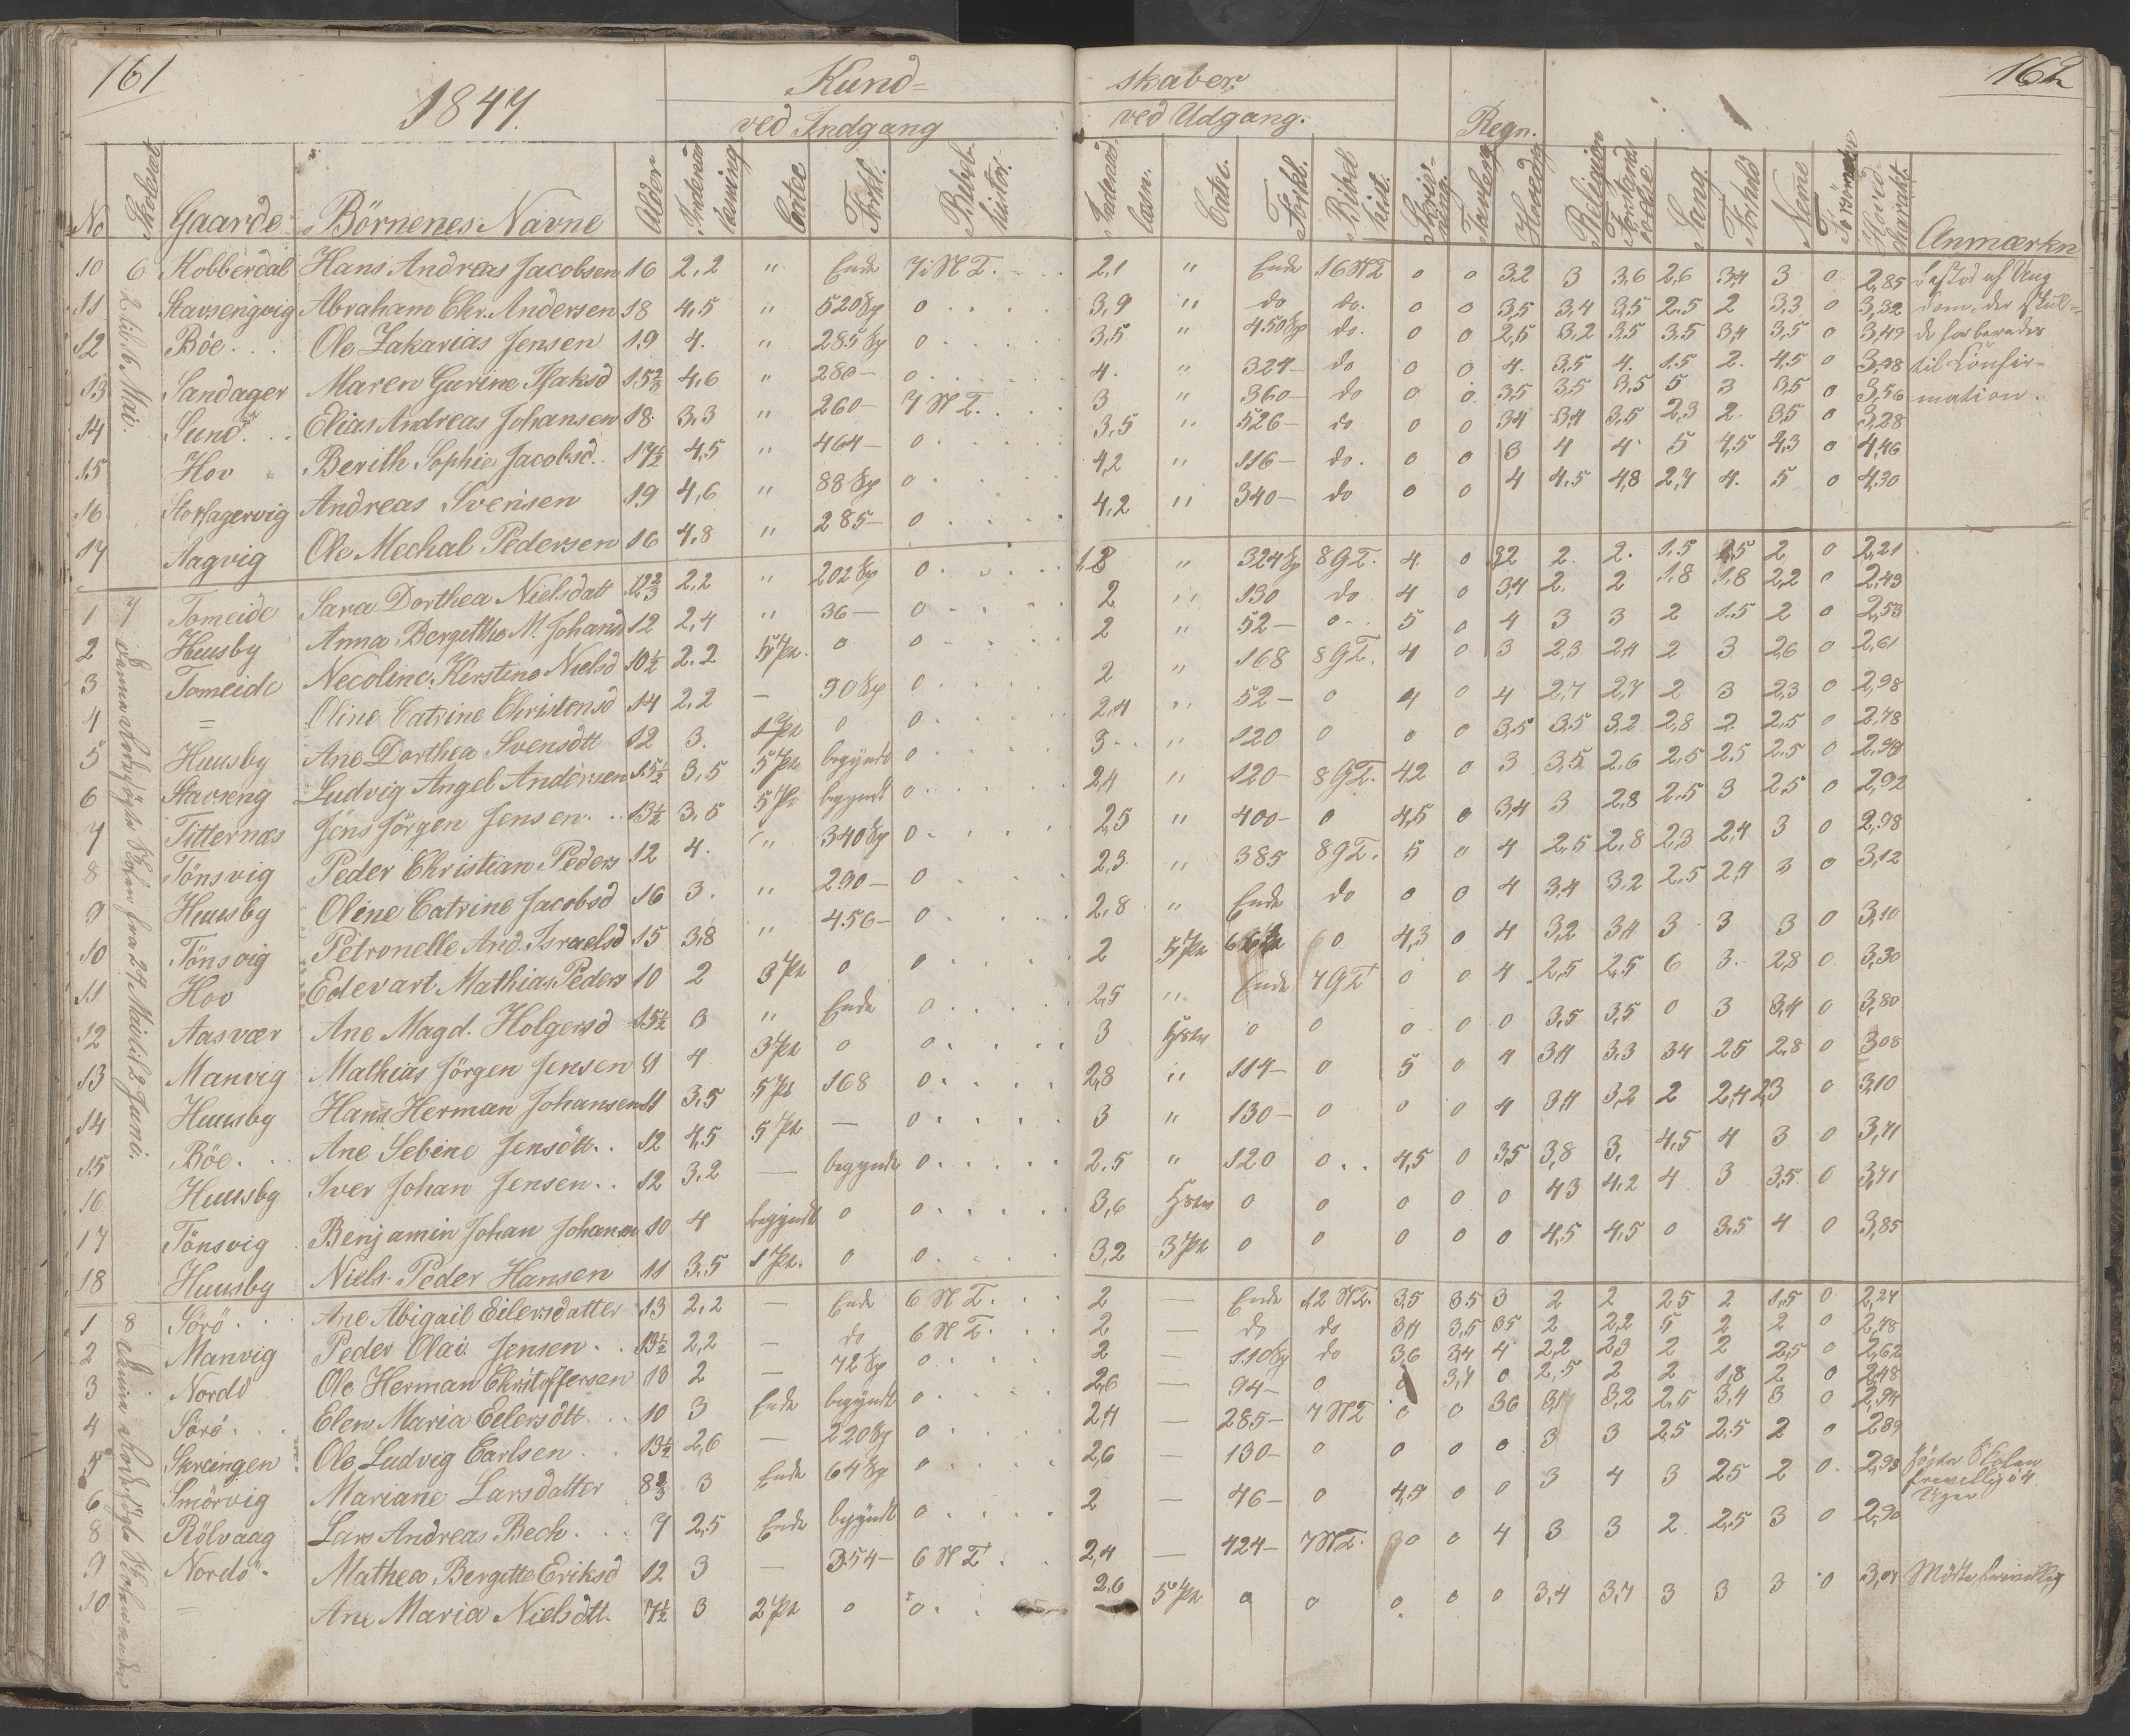 161
162
1847.
Kund= skaber.
ved Indgang ved Udgang. Regn.
No Gaarde Börnenes Navne Alder Indenad Læsning Catec Forkl. Bibelhistor. Indenad Læsn. Cate. Forkl. Bibelhist. Skrivning. Tavlereg Hovedreg Religion Sang Forhold Nemme Hovedcharakt. Anmærkn
10 6 Kobberdal Hans Andreas Jacobsen 16 2,2 " Ende 7 i N T. 2,1 " Ende 16 NT 0 0 3,2 3 3,6 2,6 3,4 3 0 2,85 bestod af Ung
11 Stavsengvig Abraham Chr. Andersen 18 4,5 " 520 Sp 0 3,9 " do do. 0 0 3,5 3,4 3,5 2,5 2 3,3 0 3,32 dom, der skul-
12 Böe Ole Zakarias Jensen 19 4. " 285 Sp 0 3,5 " 450 Sp do. 0 0 2,5 3,2 3,5 3,5 3,4 3,5 0 3,49 de forberedes
13 Sandager Maren Gurine Isaksd 15 2/3 4,6 " 280- 0 4. " 324- do 0 0 4. 3,5 4. 1,5 2. 4,5 0 3,98 til Confir-
14 Sund Elias Andreas Johansen 18 3,3 " 260- 7 N T. 3 " 360- do 0 0 3,5 3,5 3,5 5 3 3,5 0 3,56 mation.
15 Hov Berith Sophie Jacobsd. 17 1/2 4,5 " 464- 0 3,5 " 526- do 0 0 3,4 3,4 3,5 2,3 2. 3,5 0 3,28
16 Storhagervig Andreas Svensen 19 4,6 " 88 Sp 0 4,2 " 116- do. 0 0 3 4 4 5 4,5 4,3 0 4,46
17 Aagvig Ole Mechal Pedersen 16 4,8 " 285- 0 4,2 " 340- do 0 0 4 4,5 4,8 2,7 4. 5 0 4,30
2 til 16 Mai.
1 7 Tomeide Sara Dorthea Nielsdatt 12 2/3 2,2 " 202 Sp 0 1,8 " 324 Sp 8 GT. 4 0 3,2 2. 2. 1,5 2,5 2 0 2,21
2 Huusby Anna Bergitha M. Johansd 12 2,4 " 36- 0 2 " 130 do 4 0 3,4 2. 2 1,8 1,8 2,2 0 2,43
3 Tomeide Necoline Kirstine Nielsd 10 1/2 2.2 5 Pa. 0 0 2 " 52- 0 5 0 4 3 3 2 1,5 2 0 2,53
4 = Oline Catrine Christensd 14 2.2 - 90 Sp 0 2 " 168 8 GT. 4 0 3 2,3 2,4 2 3 2,6 0 2,61
5 Huusby Ane Dorthea Svensdtt 12 3. 0 0 2,4 " 52- 0 4 0 4 2,7 2,7 2 3 2,3 0 2,98
6 Stavseng Ludvig Angel Andersen 15 1/2 3,5 5 Pa begyndt 0 3 " 120 0 0 0 3,5 3,5 3,2 2,8 2 2,5 0 2,78
7 Titternæs Jens Jörgen Jensen 13 1/2 3,5 5 Pa begyndt 0 2,4 " 120- 8 GT. 4,2 0 3 3,5 2,6 2,5 2,5 2,5 0 2,98
8 Tönsvig Peder Christian Peders 12 4. " 340 Sp 0 2,5 " 400- 0 4,5 0 3,4 3 2,8 2,5 3 2,5 0 2,92
9 Huusby Oline Catrine Jacobsd 16 3. " 290- 0 2,3 " 385 8 GT. 5 0 4 2,5 2,8 2,3 2,4 3 0 2,98
10 Tönsvig Petronelle And. Israelsd 15 3,8 " 456- 0 2,8 " Ende do 0 0 4 3,4 3,2 2,5 2,4 3 0 3,12
11 Hov Edevart Mathias Peders 10 2 3 Pa 0 0 2 5 Pa 0 4,3 0 4 3,2 3,4 3 3 3 0 3,10
12 Aasvær Ane Magd. Holgersd 15 1/2 3 " Ende 0 2,5 " Ende 7 GT 0 0 4 2,5 2,5 6 3. 2,8 0 3,30
13 Manvig Mathias Jörgen Jensen 9 4 3 Pa 0 0 3 0 0 0 0 0 3,5 3,5 0 3 3,4 0 3,80
14 Huusby Hans Herman Johansen 11 3,5 5 Pa 168 0 2,8 " 114- 0 5 0 4 3,4 3,3 3,4 2,5 2,8 0 3,08
15 Böe Ane Sebine Jensdtt. 12 4,5 5 Pa - 0 3 " 130- 0 0 0 4 3,4 3,2 2 2,4 2,3 0 3,10
16 Huusby Iver Johan Jensen 12 3,2 - begyndt 0 2,5 " 120 0 4,5 0 3,5 3,8 3, 4,5 4 3 0 3,71
17 Tönsvig Benjamin Johan Johansen 10 4 begyndt 0 0 3,6 0 0 0 0 0 4,3 4,2 4 3 3,5 0 3,71
18 Huusby Niels Peder Hansen 11 3,5 1 Pa. 0 0 3,2 3 Pa 0 0 0 0 0 4,5 4,5 0 3,5 4 0 3,85
Skolen fra 24 Mai til 2 Juni.
1 8 Sörö Ane Abigail Eilersdatter 13 2,2 - Ende 6 N T. 2 - Ende 12 NT. 3,5 3,5 3 2 2 2,5 2 1,5 0 2,24
2 Manvig Peder Olai Jensen 13 1/2 2,2 - do 6 N T. 2 - do do 3,4 3,5 3,5 2 2,2 5 2 2 0 2,78
3 Nordö Ole Herman Christoffersen 13 2 - 72 Sp 0 2 - 110 Sp do 3,6 3,4 4 2,2 2,3 2 2 2,5 0 2,62
4 Sörö Elen Maria Eilersdtt. 10 3 Ende begyndt 0 2,6 - 94- 0 3,4 0 2,5 2 2 1,8 2 0 2,48
5 Skreingen Ole Ludvig Carlsen 13 1/2 2,6 - 220 Sp 0 2,4 - 285- 7 NT 0 0 3,6 3,1 3,2 2,5 3,4 3 0 2,94
6 Smörvig Mariane Larsdatter 8 2/3 3 Ende 64 Sp 0 2,6 - 130- 0 0 0 0 3 3 2,5 2,5 2 0 2,89
8 Rölvaag Lars Andreas Bech 7 2,5 Ende begyndt 0 2 - 46- 0 4,5 0 0 3 4 3 2,5 2 0 2,98 sögte Skolen frevillig i 4 Uger
9 Nordö Mathea Bergitte Eriksd 12 3 - 354- 6 N T 2,4 - 424- 7 NT. 0 0 4 3 3 2 2,5 3 0 2,90
10 = Ane Maria Nielsdtt. 7 1/2 3 2 Pa 0 0 2,6 5 Pa 0 0 0 0 0 3,4 3,7 3 3 3 0 3,07 Mötte frivillig